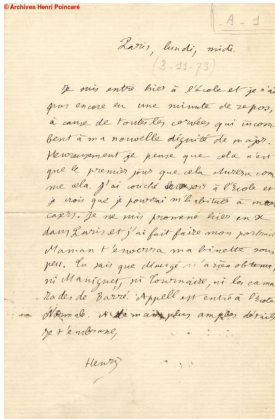 © Archives Henri Poincaré
A-1
Paris, lundi, midi
(3-11-73)
Je suis entré hier à l'école et je n'ai
pas encore eu une minute de repos,
à cause de toutes les corvées qui incom
bent à ma nouvelle dignité de major.
Heureusement je pense que cela n'est
que le premier jour que cela durera com
me cela. J'ai couché à l'école et
je crois que je pourrai m'habituer à mon
casert. Je me suis promené hier en
dans Paris et j'ai fait faire mon portrait
Maman t'enverra ma binette sous
peu. Tu sais que n'a rien obtenu,
ni ni Tournaire, ni les cama
rades de Barré. Appell est entré à l'école
Normale. A demain plus amples détails
Je t'embrasse,
Henri